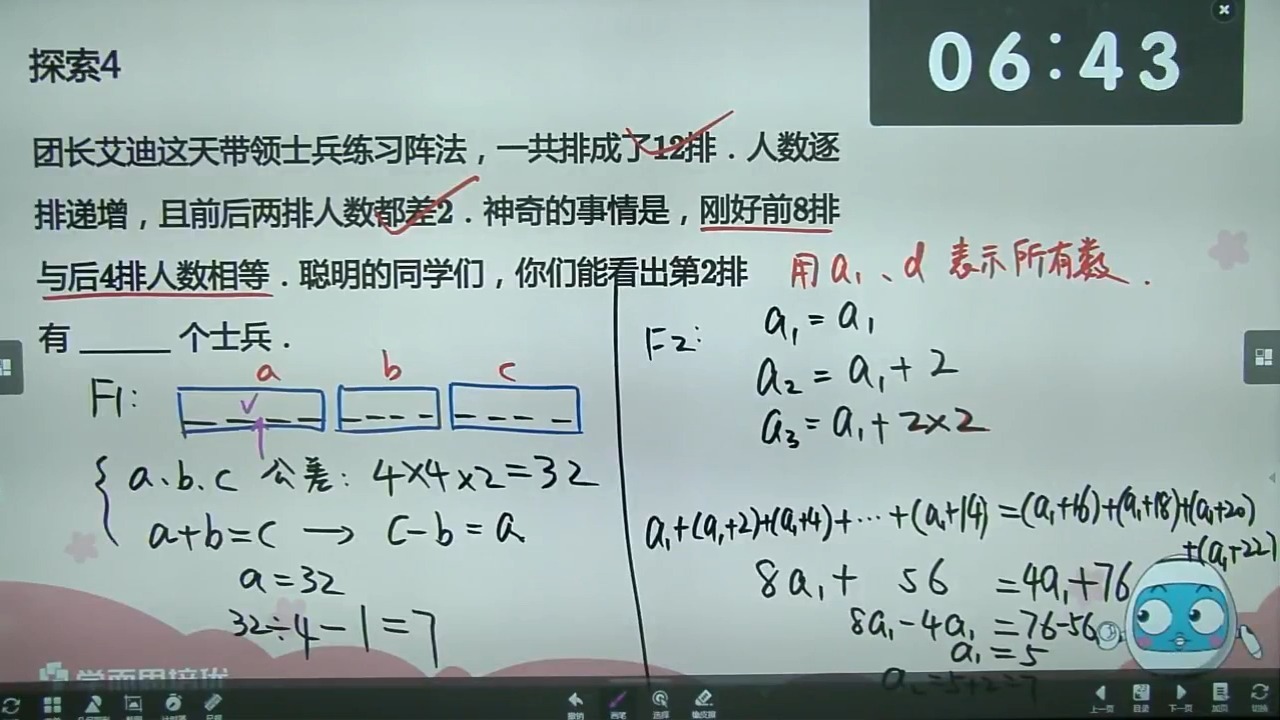 06:43
探索4
团长艾迪这天带领士兵练习阵法，一共排成了12排．人数逐
排递增，且前后两排人数都差2．神奇的事情是，刚好前8排
与后4排人数相等．聪明的同学们，你们能看出第2排
有 ______ 个士兵．
用a₁、d 表示所有数．
F1:
a b c
a、b、c 公差：4×4×2=32
a+b=c → c-b=a
a=32
32÷4-1=7
F2:
a₁=a₁
a₂=a₁+2
a₃=a₁+2×2
a₁+(a₁+2)+(a₁+4)+…+(a₁+14)=(a₁+16)+(a₁+18)+(a₁+20)
+(a₁+22)
8a₁+ 56 =4a₁+76
8a₁-4a₁=76-56
a₁=5
a₂=5+2=7
学而思培优
撤销 画笔 选择 橡皮擦
上一页 目录 下一页 加页 切换